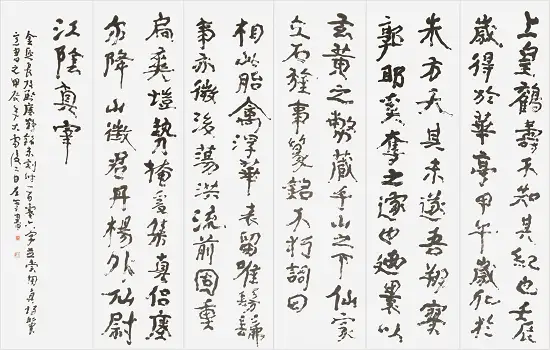 上皇鶴壽不知其紀也壬辰
歲得於華亭甲午歲化於
朱方天其未遂吾翔寥
廓耶奚奪之遽也廼裹以
玄黃之幣藏乎山之下仙家
立石旌事篆銘不朽詞曰
相此胎禽浮華表留唯髣髴
事亦微後蕩洪流前固重
扃爽塏勢掩爰集真侶瘞
尔降山徵君丹楊外仙尉
江陰真宰